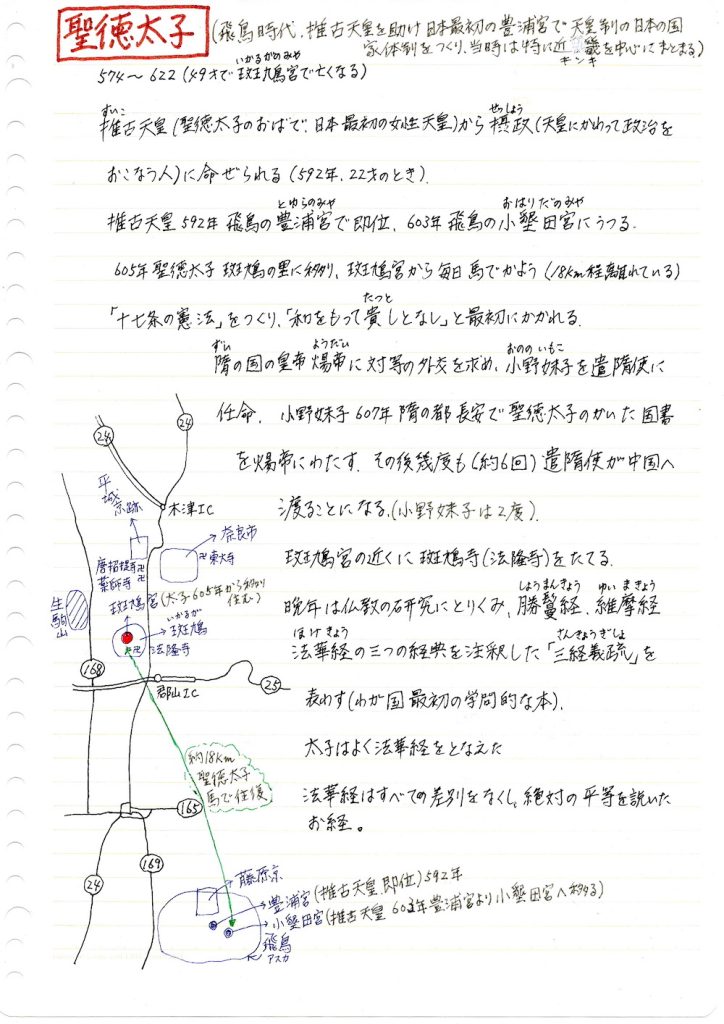 聖徳太子
(飛鳥時代、推古天皇を助け日本最初の豊浦宮で天皇制の日本の国
家体制をつくり、当時は特に近畿を中心にまとまる)
キンキ
いかるがのみや
574～622 (49才で斑鳩宮で亡くなる)
すいこ
せっしょう
推古天皇(聖徳太子のおばで、日本最初の女性天皇)から摂政(天皇にかわって政治を
おこなう人)に命ぜられる(592年、22才のとき).
とゆらのみや
おはりだのみや
推古天皇592年飛鳥の豊浦宮で即位、603年飛鳥の小墾田宮にうつる.
605年聖徳太子斑鳩の里に移り、斑鳩宮から毎日馬でかよう(18km程離れている)
たつと
「十七条の憲法」をつくり、「和をもって貴しとなし」と最初にかかれる.
ずい
ようだい
おののいもこ
隋の国の皇帝煬帝に対等の外交を求め、小野妹子を遣隋使に
任命、小野妹子607年隋の都長安で聖徳太子のかいた国書
を煬帝にわたす、その後幾度も(約6回)遣隋使が中国へ
渡ることになる.(小野妹子は2度).
斑鳩宮の近くに斑鳩寺(法隆寺)をたてる.
しょうまんきょう
ゆいまきょう
晩年は仏教の研究にとりくみ、勝鬘経、維摩経
ほけきょう
さんきょうぎしょ
法華経の三つの経典を注釈した「三経義疏」を
表わす(わが国最初の学問的な本).
太子はよく法華経をとなえた
法華経はすべての差別をなくし、絶対の平等を説いた
お経。
24
24
木津IC
平城京跡
奈良市
卍東大寺
唐招提寺卍
薬師寺卍
斑鳩宮(太子605年から移り
住む)
生駒山
いかるが
斑鳩
卍法隆寺
168
郡山IC
25
約18km
聖徳太子
馬で往復
165
169
24
藤原京
豊浦宮(推古天皇即位)592年
小墾田宮(推古天皇603年豊浦宮より小墾田宮へ移る)
飛鳥
アスカ